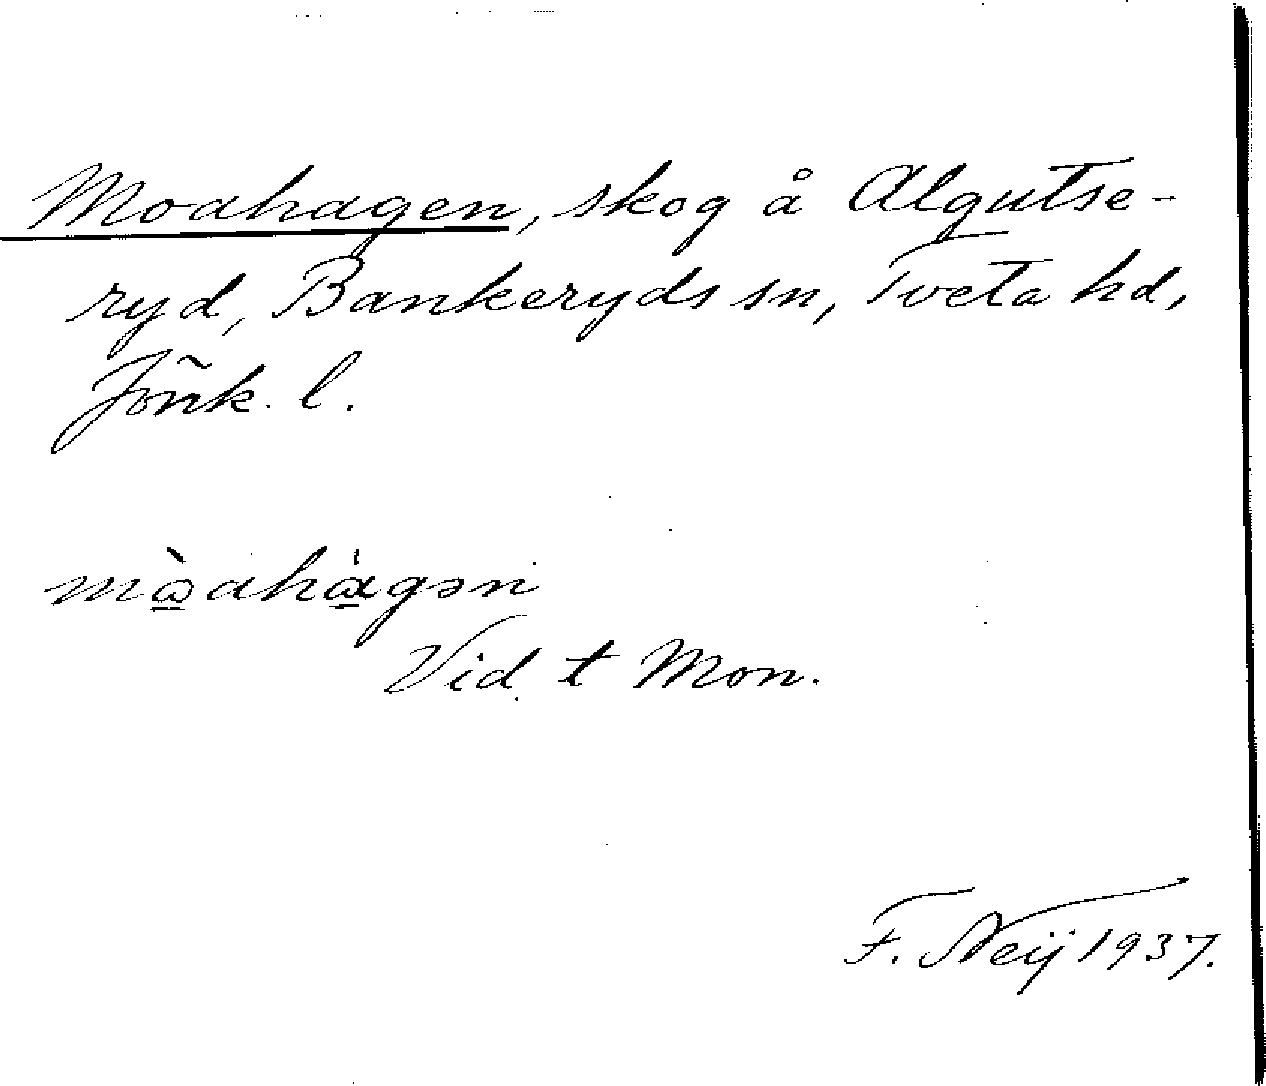 Moahagen, skog å Algutse-
ryd, Bankeryds sn, Tveta hd,
Jönk. l.
mὼ̱ahὰ̱gən
Vid t Mon.
F. Neij 1937.